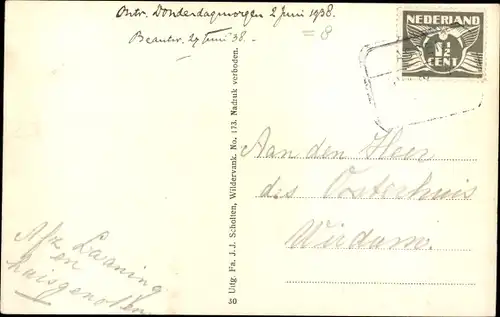 Ontv. Donderdagmorgen 2 Juni 1938.
Beantw. 27 Juni 38.-
= 8
NEDERLAND
1½
CENT
Aan den Heer
des Oosterhuis
Wirdum.
Afz Laaning
en
huisgenoten.
Uitg. Fa. J. J. Scholten, Wildervank. No. 173. Nadruk verboden.
30